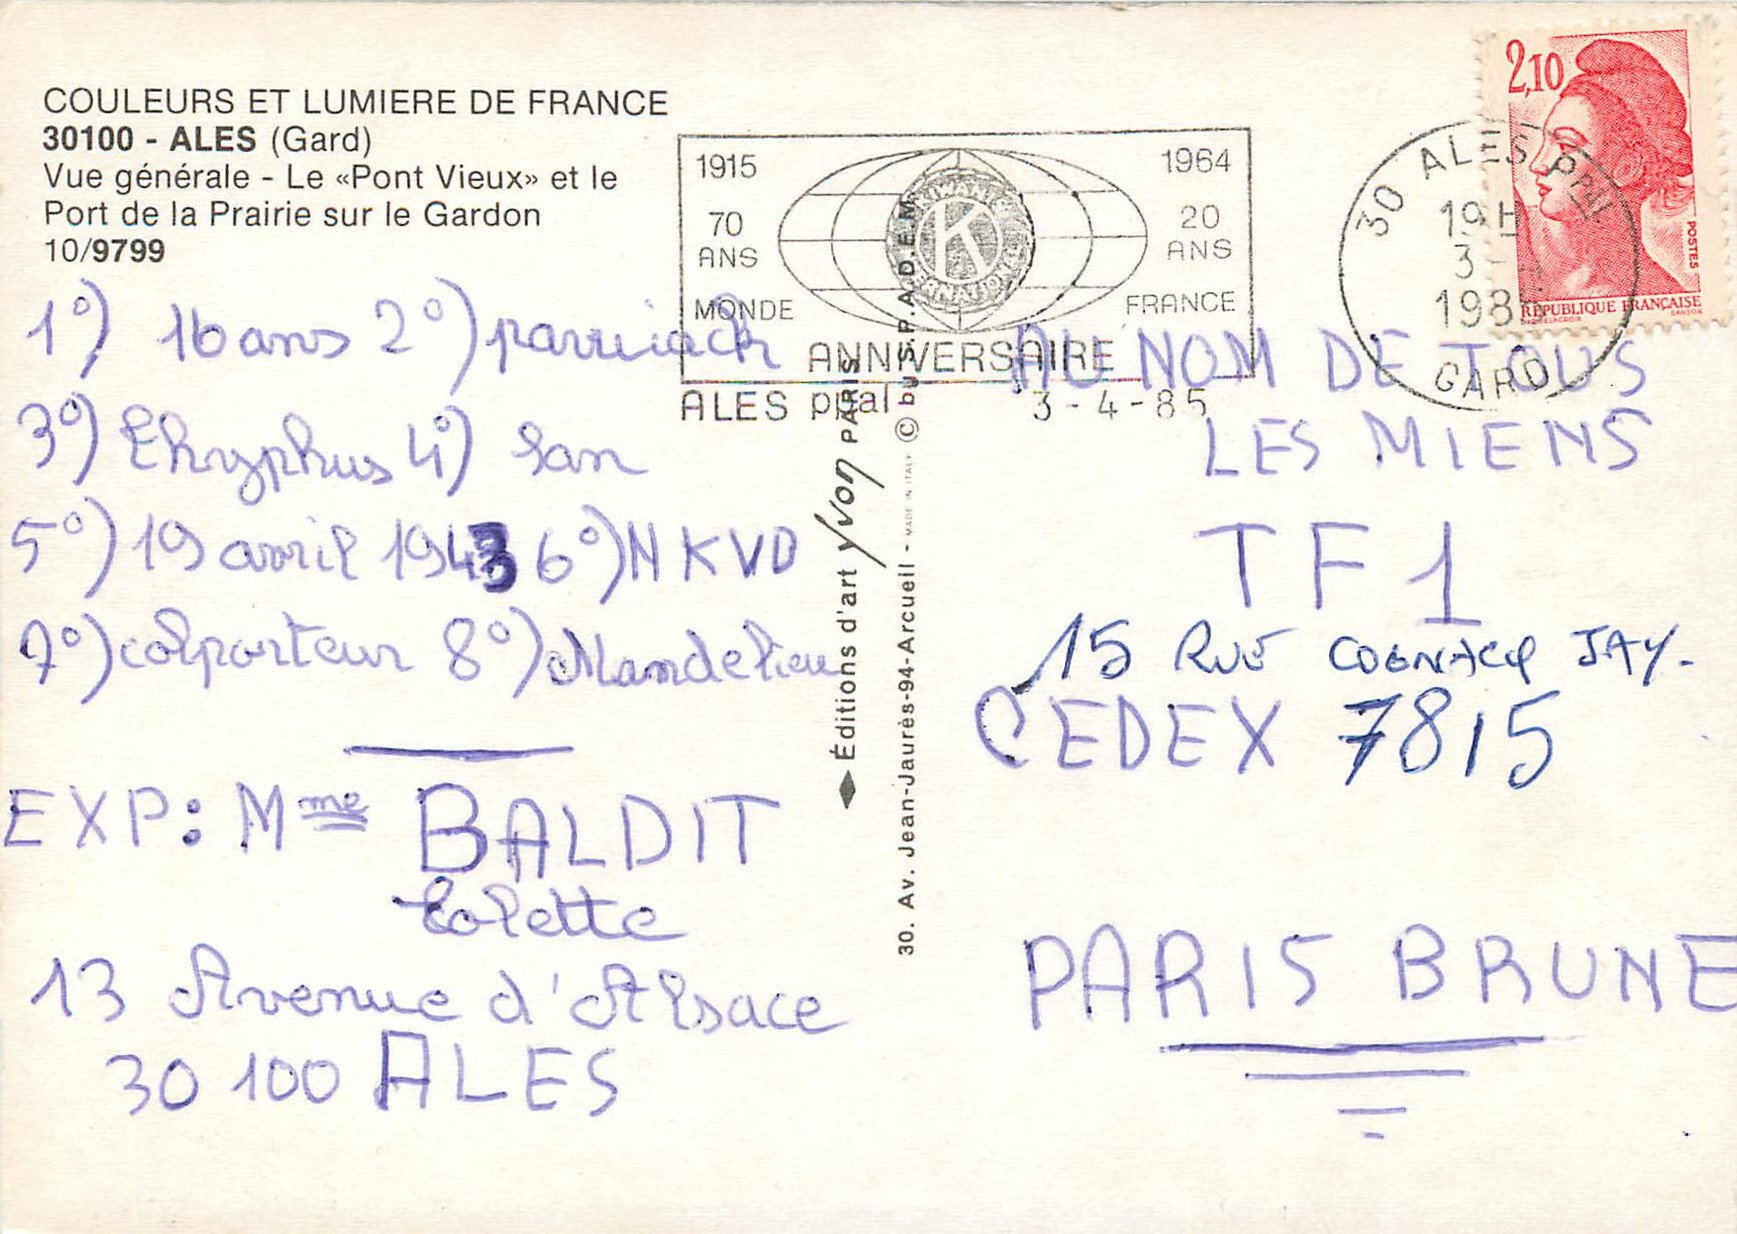 COULEURS ET LUMIERE DE FRANCE
30100 - ALES (Gard)
Vue générale - Le «Pont Vieux» et le
Port de la Prairie sur le Gardon
10/9799
1°) 16 ans 2°) parruiack
3°) Ehryphus 4°) San
5°) 19 avril 1943 6°) NKVD
7°) colporteur 8°) Mandelieu
EXP: Mme BALDIT
Colette
13 Avenue d'Alsace
30 100 ALES
◆ Éditions d'art yvon PARIS
30. Av. Jean-Jaurès-94-Arcueil - MADE IN ITALY © by S.P.A.D.E.M.
1915 1964
70 ANS 20 ANS
MONDE FRANCE
KIWANIS INTERNATIONAL
K
ANNIVERSAIRE
ALES ppal 3-4-85
30 ALES Ppal
19H
3-4
1985
GARD
2,10
POSTES
REPUBLIQUE FRANÇAISE
AU NOM DE TOUS
LES MIENS
TF1
15 RUE COGNACQ JAY-
CEDEX 7815
PARIS BRUNE